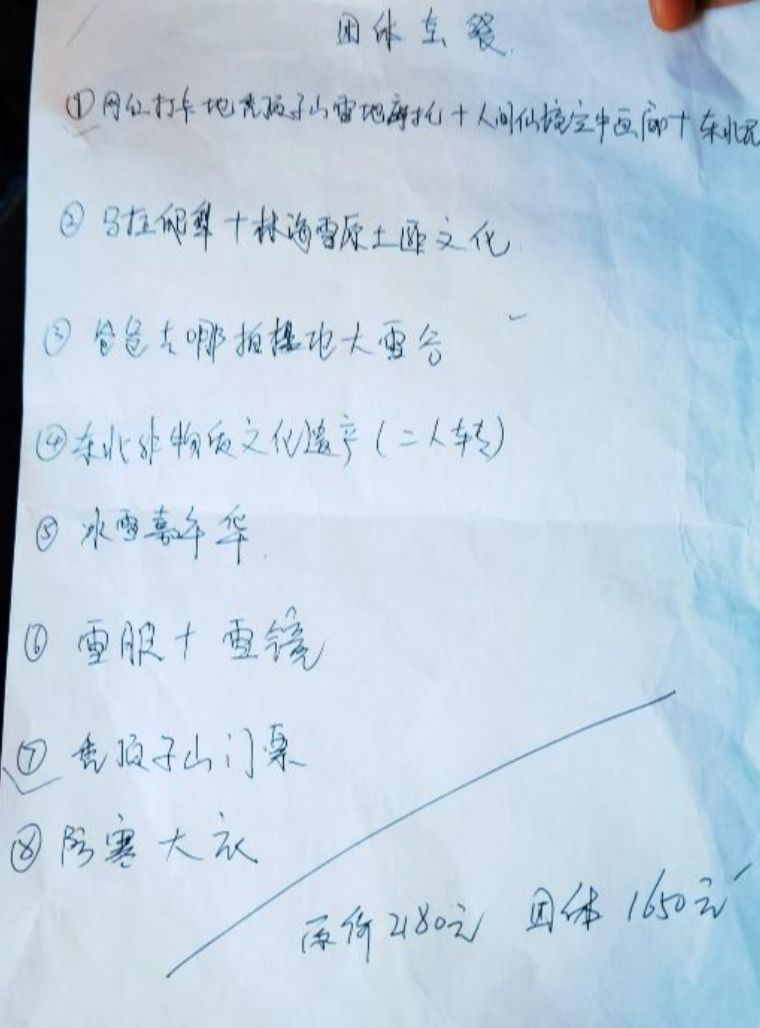 团体套餐
①网红打卡地秃顶子山雪地摩托+人间仙境空中画廊+东北
②马拉爬犁+林海雪原土匪文化
③爸爸去哪拍摄地大雪谷
④东北非物质文化遗产(二人转)
⑤冰雪嘉年华
⑥雪服+雪镜
⑦秃顶子山门票
⑧防寒大衣
原价2180元 团体1650元